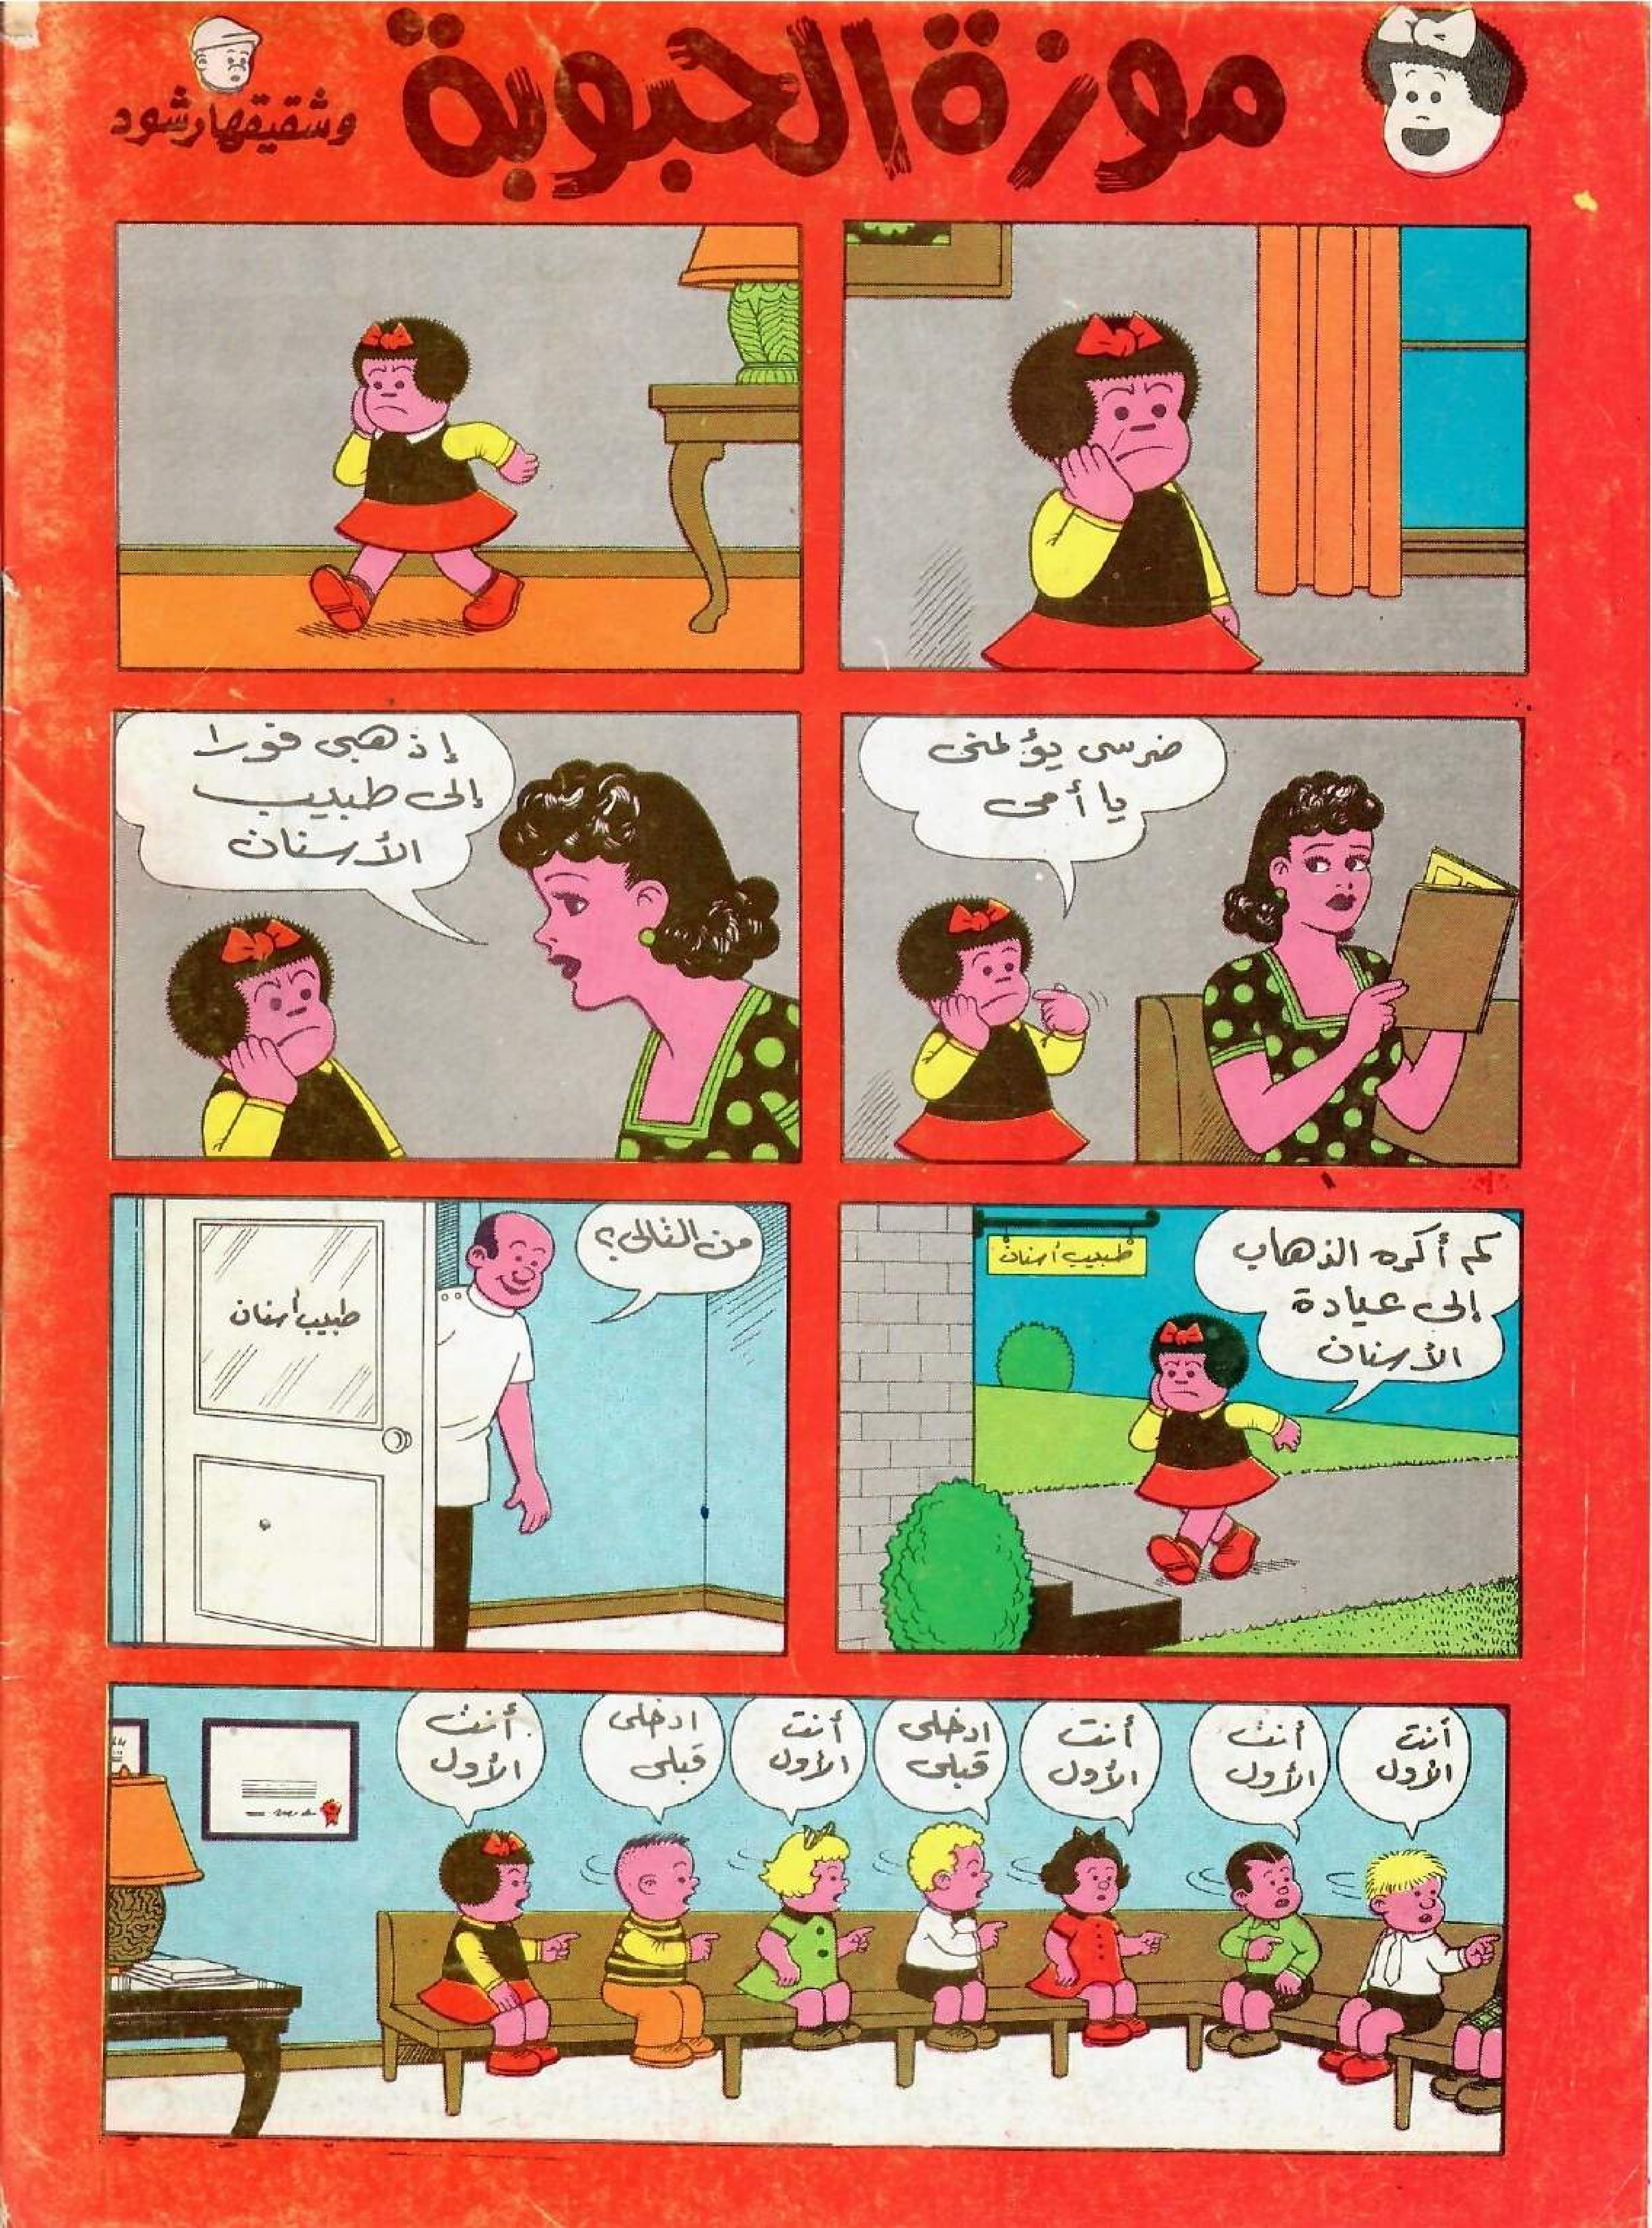 موزة الحبوبة
وشقيقها رشود
ضرسى يؤلمنى
يا أمى
إذهبى فورا
إلى طبيب
الأسنان
كم أكره الذهاب
إلى عيادة
الأسنان
طبيب أسنان
من التالى؟
طبيب أسنان
أنت
الأول
أنت
الأول
أنت
الأول
ادخلى
قبلى
أنت
الأول
ادخلى
قبلى
أنت
الأول